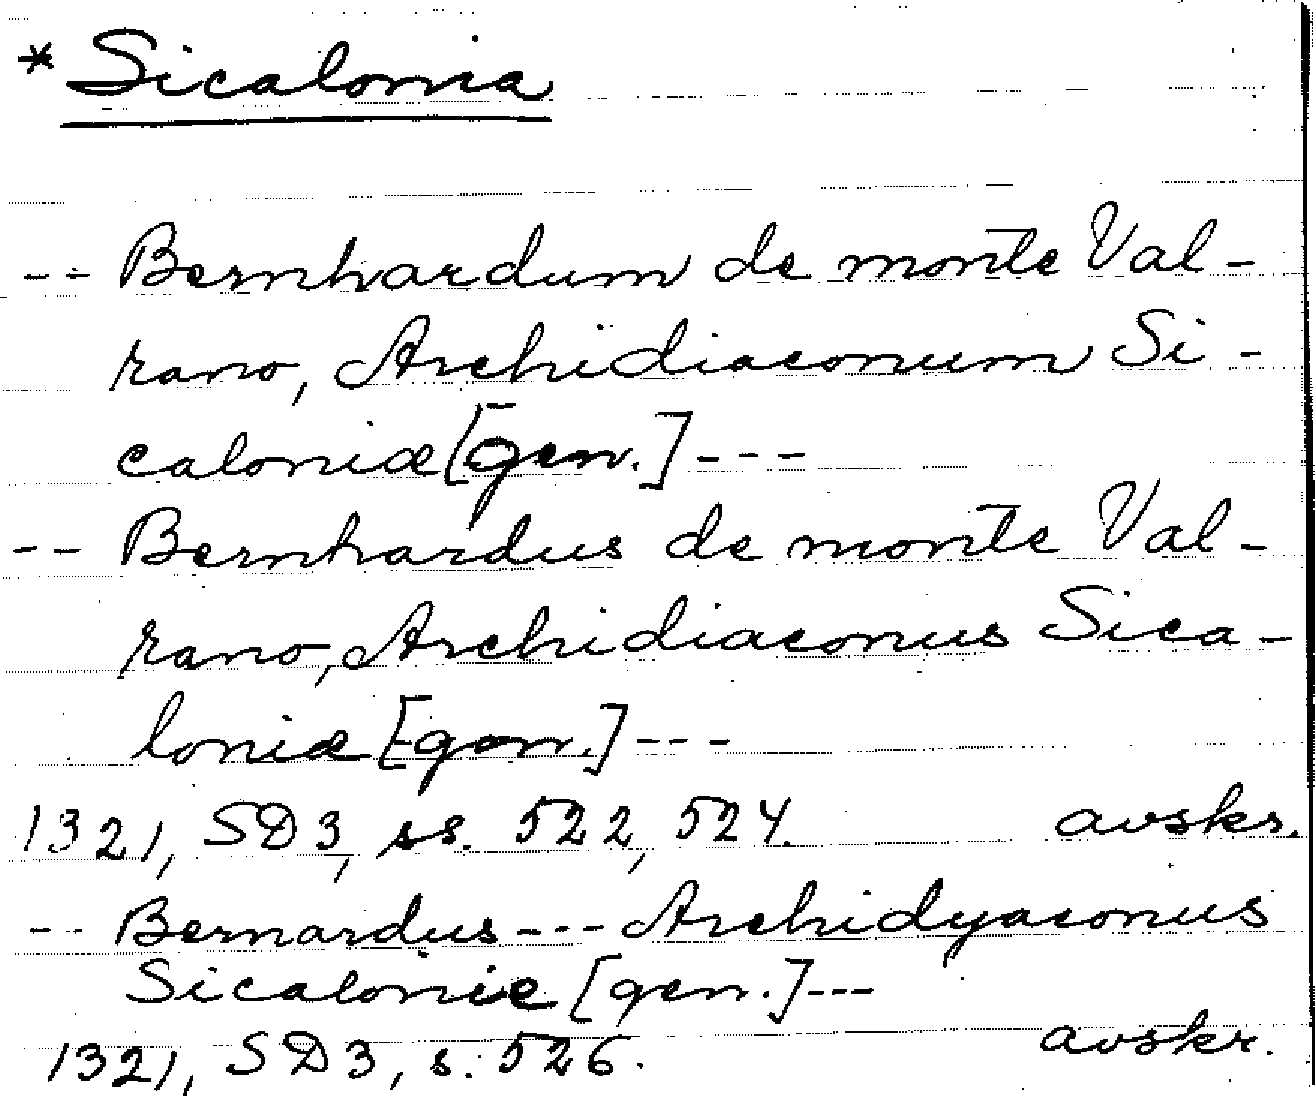 * Sicalonia
-- Bernhardum de monte Val-
rano, Archidiaconum Si-
caloniæ [gen.] ---
-- Bernhardus de monte Val-
rano, Archidiaconus Sica-
loniæ [gen.] ---
1321, SD3, ss. 522, 524. avskr.
-- Bernardus --- Archidyaconus
Sicalonie [gen.] ---
1321, SD3, s. 526. avskr.